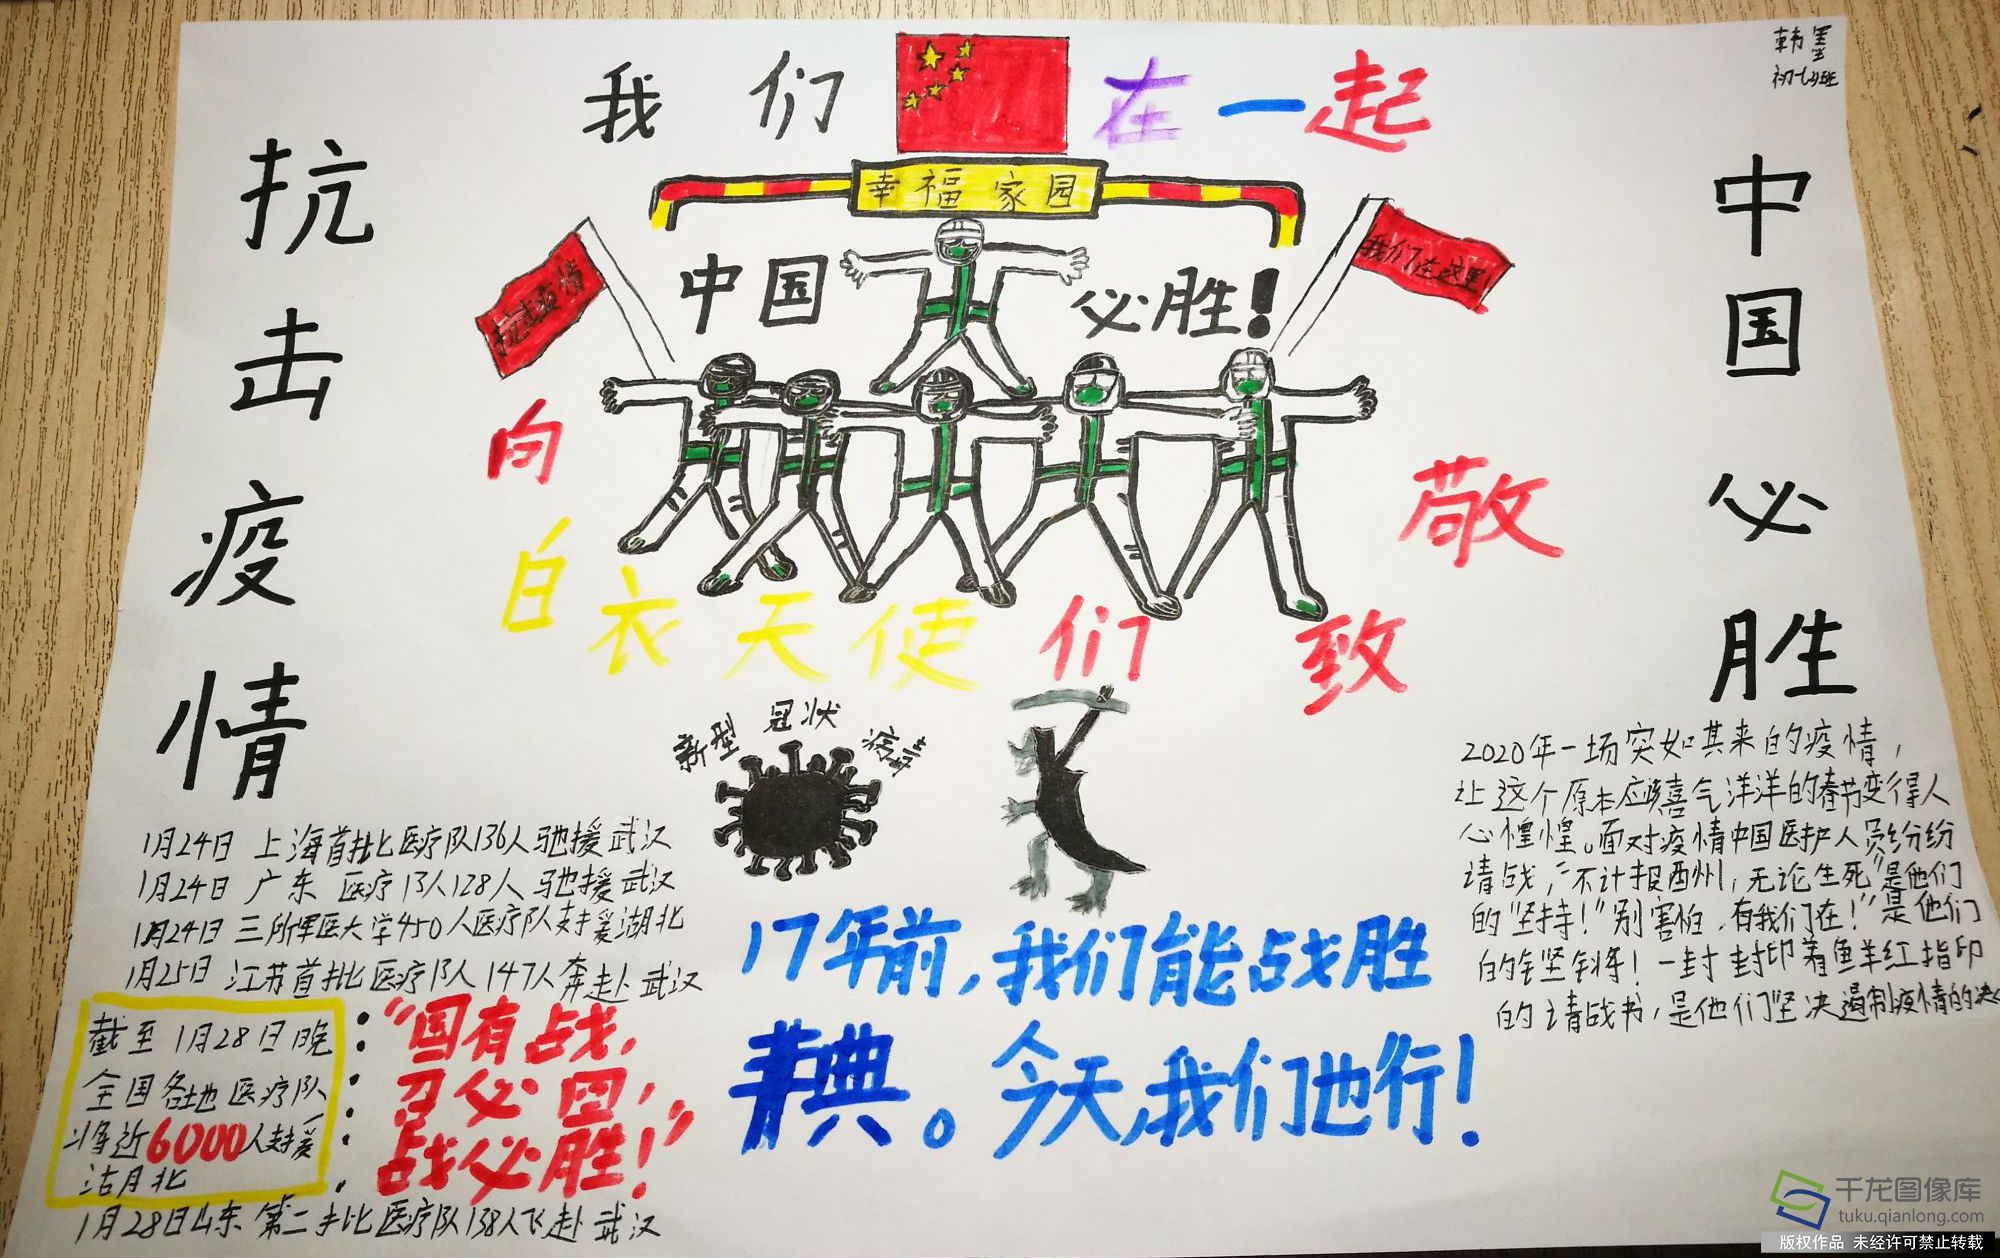 韩墨
我们在一起
幸福家园
抗击疫情
中国必胜
抗击疫情
中国必胜!
我们在这里
向白衣天使们致敬
新型冠状病毒
1月24日 上海首批医疗队136人驰援武汉
1月24日 广东 医疗队128人驰援武汉
1月24日 三所军医大学450人医疗队支援湖北
1月25日 江苏首批医疗队147人奔赴武汉
截至1月28日晚
全国各地医疗队
将近6000人支援
湖北
1月28日山东第二批医疗队138人飞赴武汉
“国有战,
召必回,
战必胜!”
17年前,我们能战胜
非典。今天,我们也行!
2020年一场突如其来的疫情,
让这个原本应该喜气洋洋的春节变得人
心惶惶。面对疫情中国医护人员纷纷
请战,“不计报酬,无论生死”是他们
的“坚持!”“别害怕,有我们在!”是他们
的铿锵!一封封印着鲜红指印
的请战书,是他们坚决遏制疫情的决
千龙图像库
tuku.qianlong.com
版权作品 未经许可禁止转载